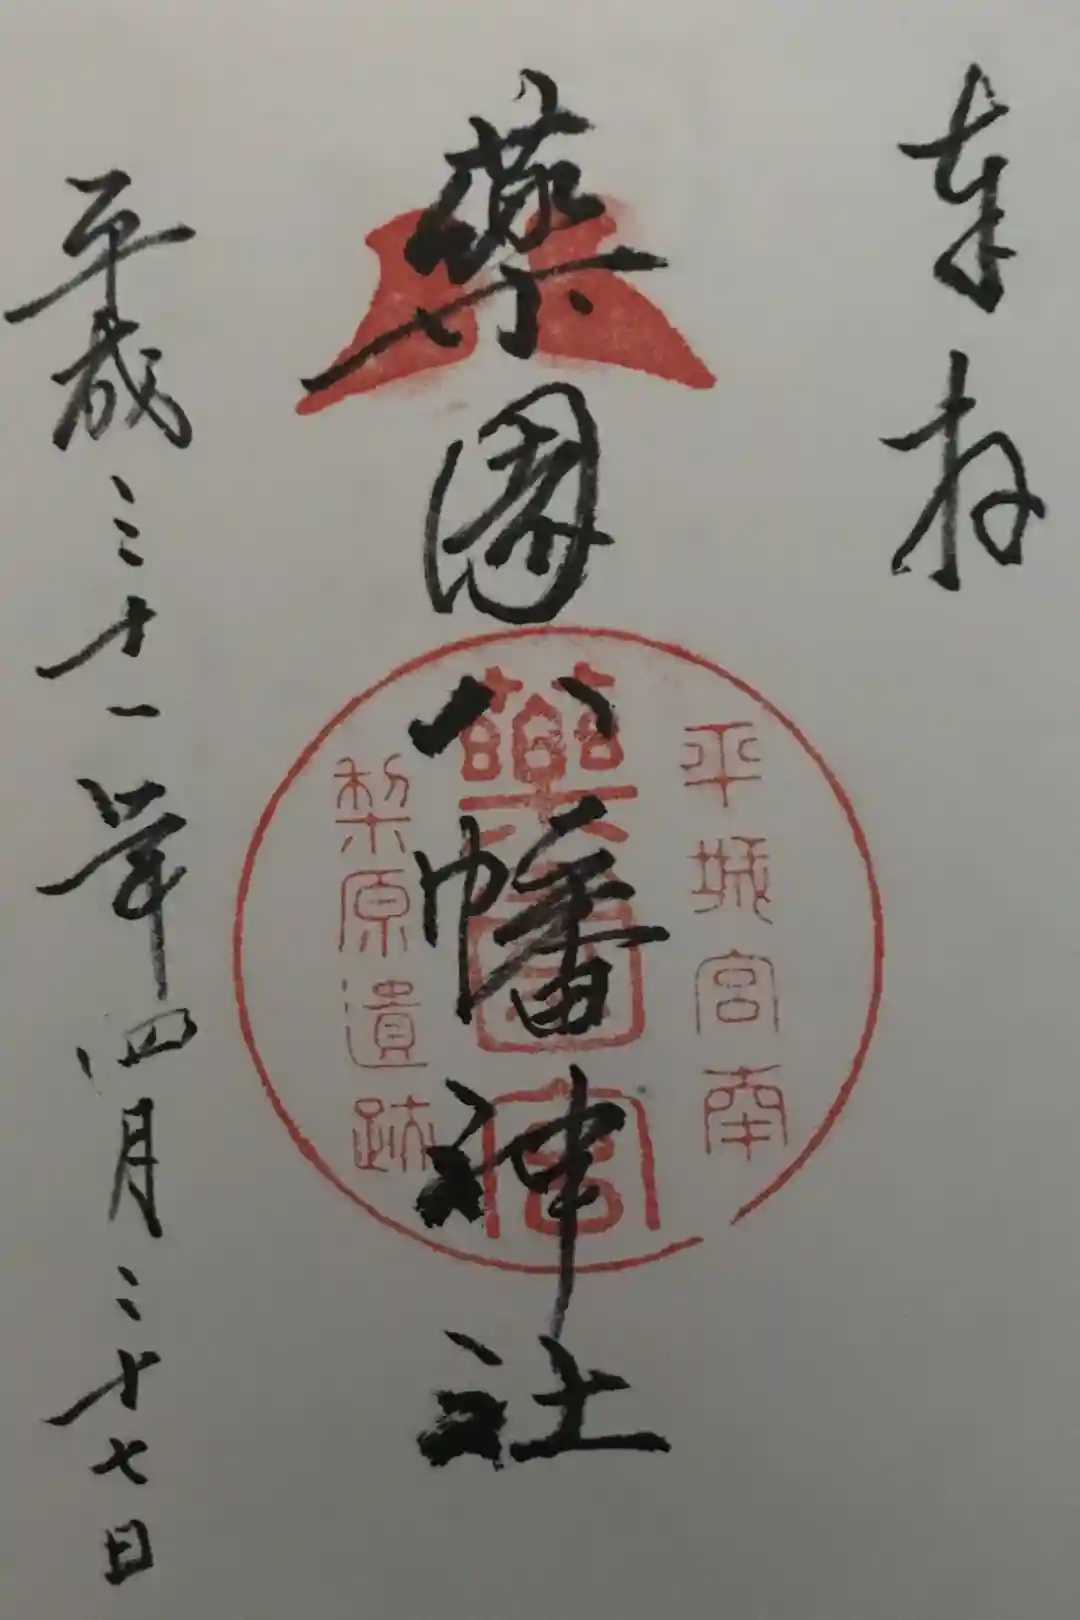 奉拝
平城宮南
藥園八幡神社
藥園宮
梨原遺跡
平成三十一年四月二十七日